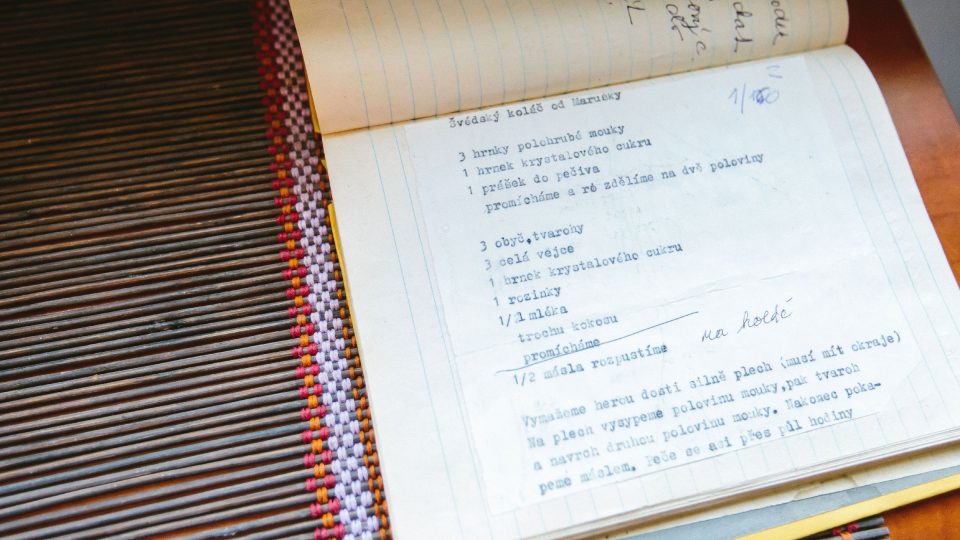 Švédský koláč od Marušky
3 hrnky polohrubé mouky
1 hrnek krystalového cukru
1 prášek do pečiva
promícháme a rozdělíme na dvě poloviny
3 obyč,tvarohy
3 celá vejce
1 hrnek krystalového cukru
1 rozinky
1/2l mléka
trochu kokosu
promícháme
1/2 másla rozpustíme
Vymažeme herou dosti silně plech (musí mít okraje)
Na plech vysypeme polovinu mouky,pak tvaroh
a navrch druhou polovinu mouky. Nakonec poka-
peme máslem. Peče se asi přes půl hodiny